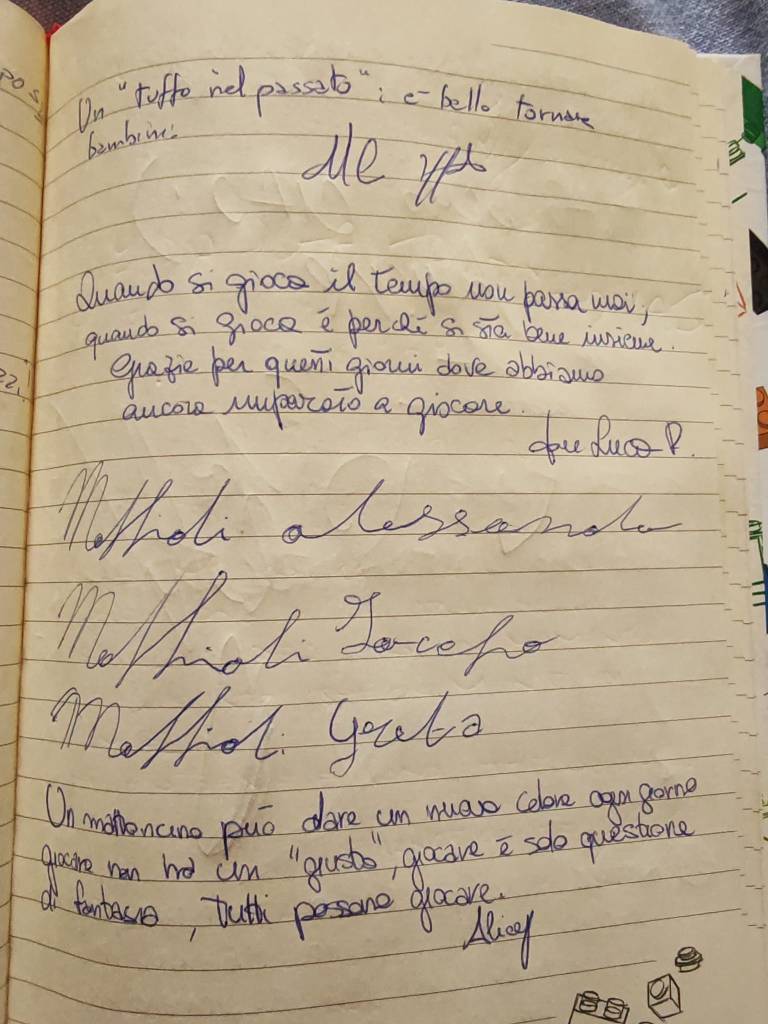 PO S
Un "tuffo nel passato"; è bello tornare
bambini.
Quando si gioca il tempo non passa mai,
quando si gioca è perché si sta bene insieme.
Grazie per questi giorni dove abbiamo
ancora imparato a giocare.
don Luca P.
Maffioli Alessandro
Maffioli Jacopo
Maffioli Greta
Un mattoncino può dare un nuovo colore ogni giorno
giocare non ha un "giusto", giocare è solo questione
di fantasia, tutti possono giocare.
Alice